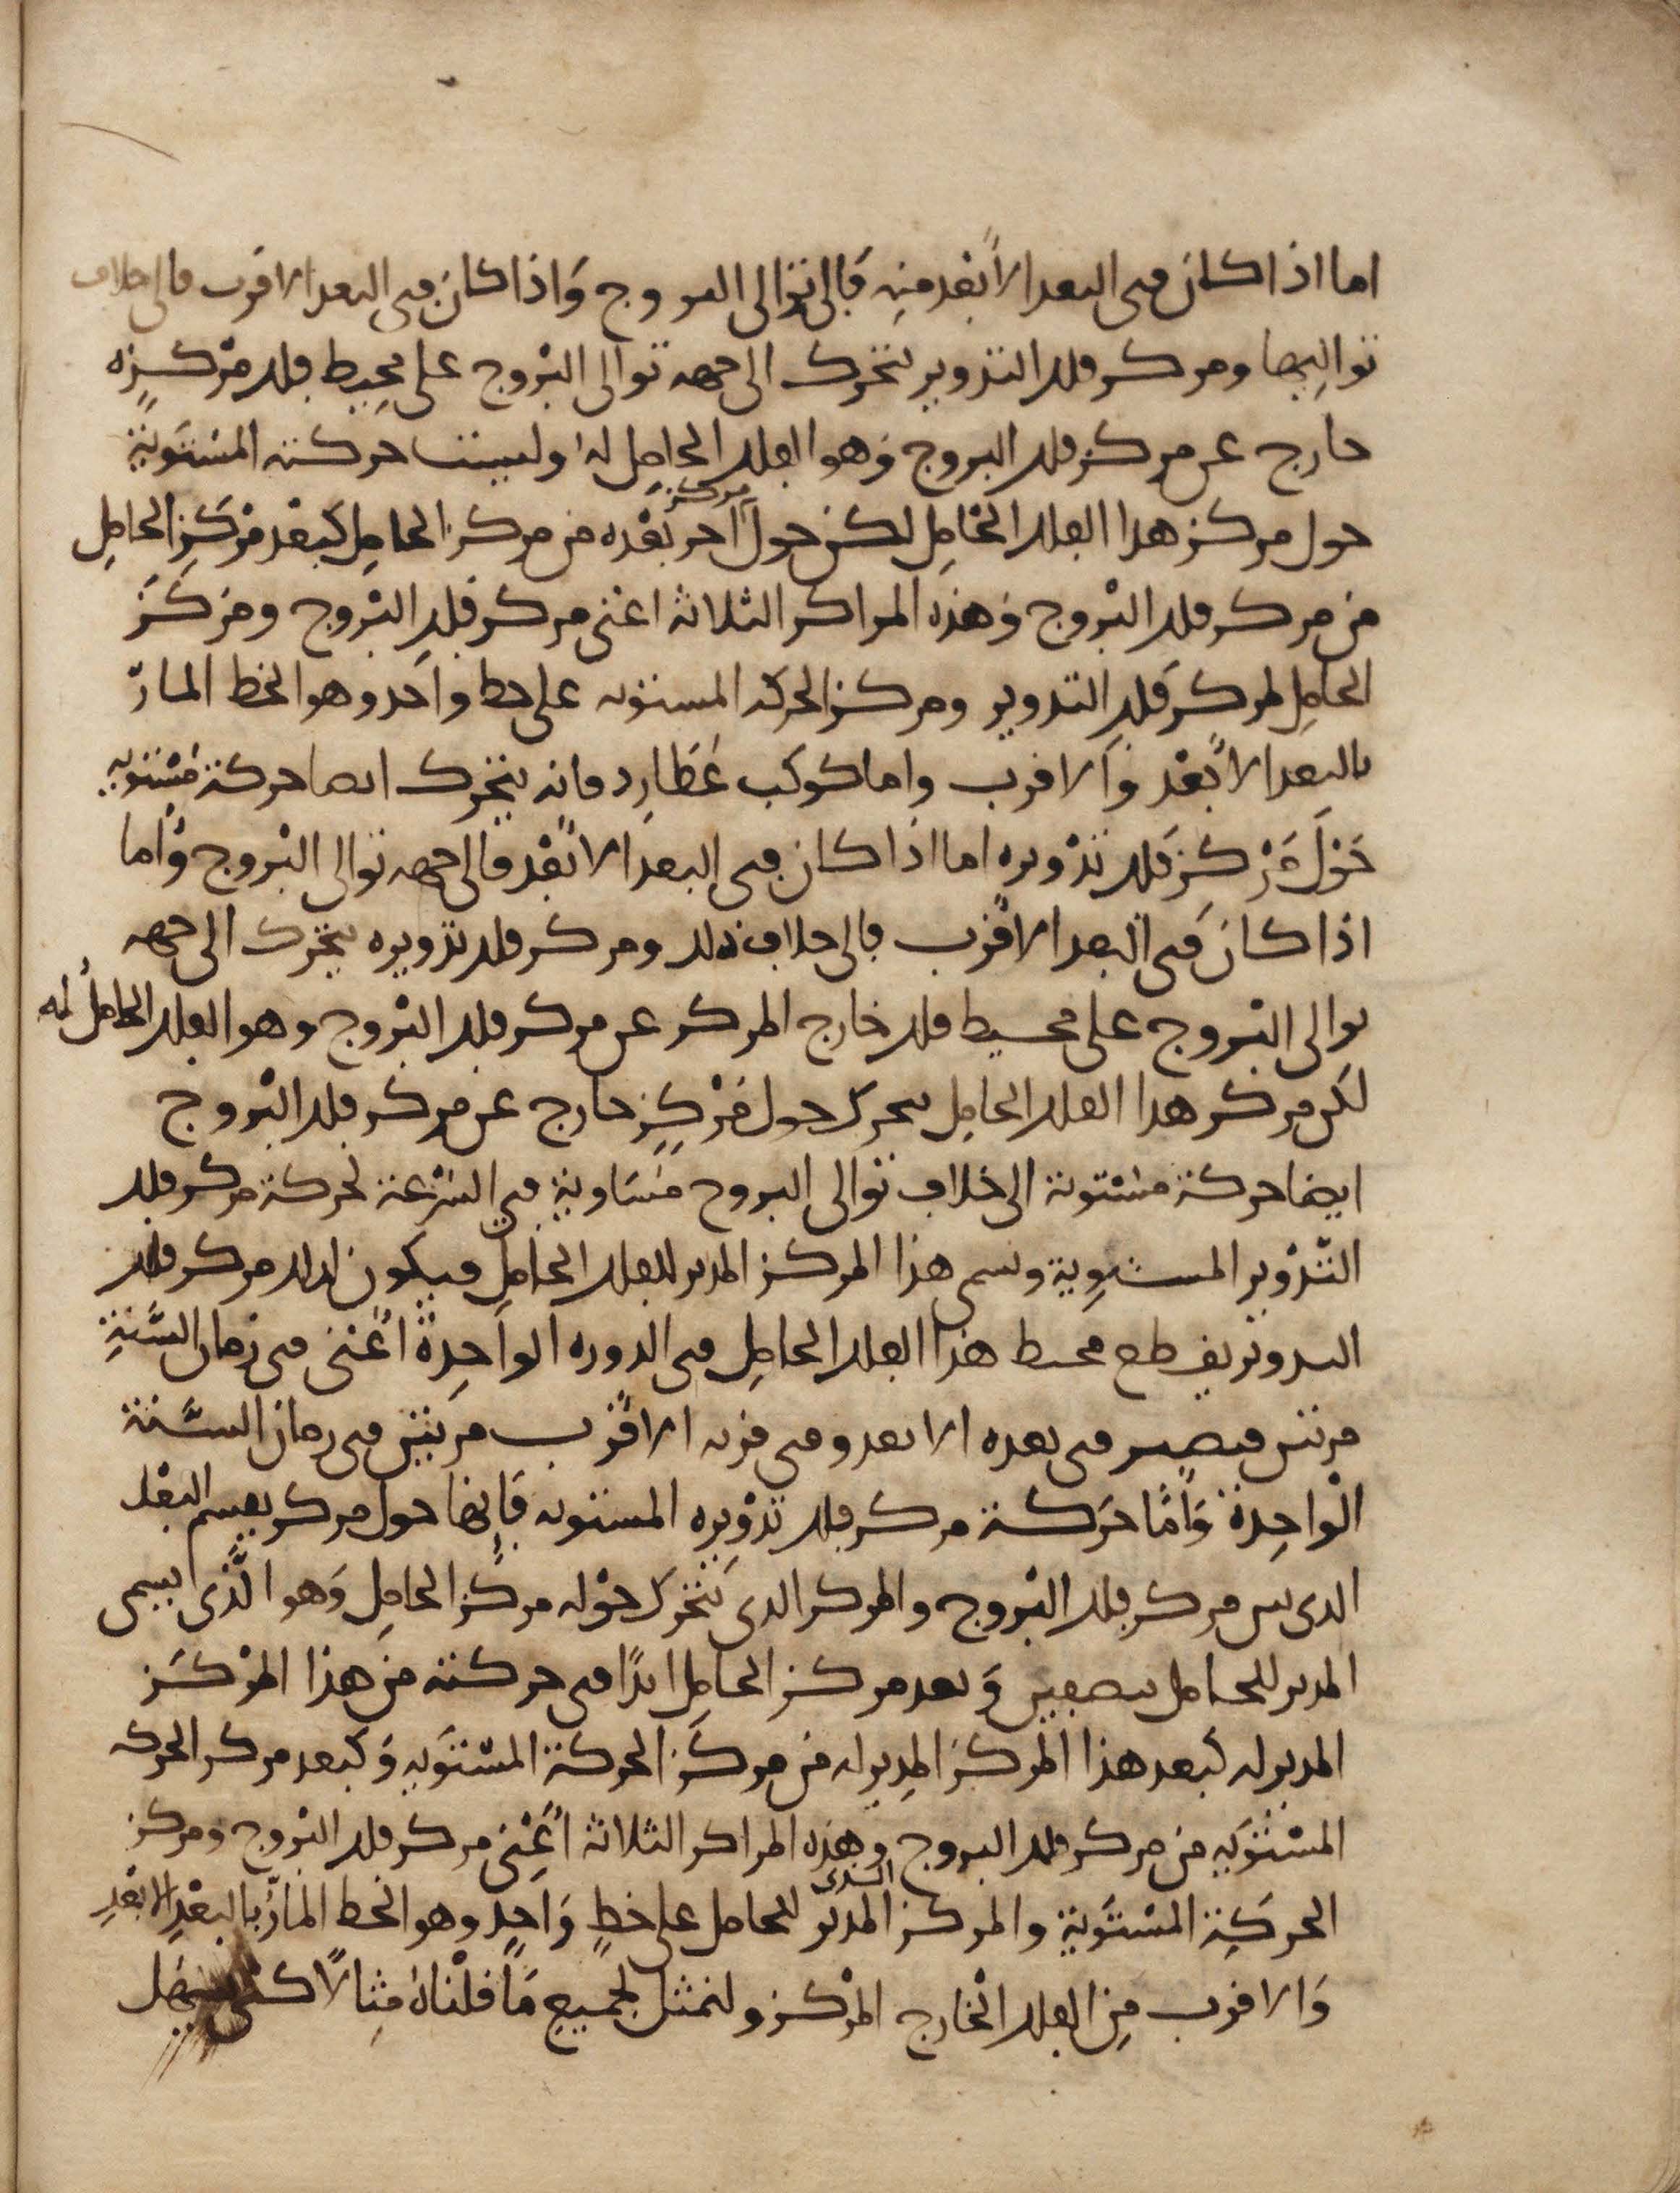 اما اذا كان فى البعد الأبعد منه فالى توالى البروج وَاذا كان فى البعد الاقرب فالى خلاف
تواليها ومركز فلك التدوير يتحرك الى جهه توالى البروج على محيط فلك مركزه
خارج عن مركز فلك البروج وَهو الفلك الحامِل له وليست حركته المستوية
حول مركز هذا الفلك الحامِل لكن حول مركز آخر بعده من مركز الحامِل كبعد مركز الحامِل
من مركز فلك البروج وَهذه المراكز الثلاثه اعنى مركز فلك البروج ومركز
الحامِل لمركز فلك التدوير ومركز الحركه المستويه على خط واحد وهو الخط المارّ
بالبعد الأبعد والاقرب واما كوكب عُطَارِد فانه يتحرك ايضا حركة مستويه
حَوْلَ مَرْكز فلك تدويره اما اذا كان فى البعد الأبعد فالى جهه توالى البروج وَاما
اذا كان فى البعد الاقرب فالى خلاف ذلك ومركز فلك تدويره يتحرك الى جهه
توالى البروج على محيط فلك خارج المركز عن مركز فلك البروج وهو الفلك الحامل له
لكن مركز هذا الفلك الحامِل يتحرك حول مَرْكزٍ خارج عن مركز فلك البروج
ايضا حركة مستوية الى خلاف توالى البروج مُسَاوية فى السرعة لحركة مركز فلك
التّدْوير المستوِية ويسمى هذا المركز المدير للفلك الحامِل فيكون لذلك مركز فلك
التدوير يقطع محيط هذا الفلك الحامِل فى الدوره الواحِدة أعنى فى زمان السَّنةِ
مرتين فيصير فى بعده الابعد وفى قربه الاقْرب مرتين فى زمان السَّنة
الْواحِدة وَأمّا حَركة مركز فلك تدْوِيره المستويه فَإنها حول مركز يقسم البعْد
الذى بين مركز فلك البروج والمركز الذى يَتحرك حَوْله مركز الحامِل وَهو الَّذى يسمى
المدير للحامل بنصفين وَبعد مركز الحامِل ابدًا فى حركته من هذا المرْكَز
المدير له كبعد هذا المركز المدِير له من مركَز الحركة المسْتَويه وَكبعد مركز الحركه
المسْتَوَيه من مركز فلك البروج وهذه المراكز الثلاثة أعْنِى مركز فلك البروج ومركز
الحركة المسْتَوَية والمركز الذى المدير للحامل على خطٍ وَاحِدٍ وهو الخط المارُّ بالبعْدِ الابعْدِ
وَالاقرب مِن الفلك الخارج المرْكز ولنمثل لجميعِ مَا قلْناهُ مِثالًا كى يسهَل